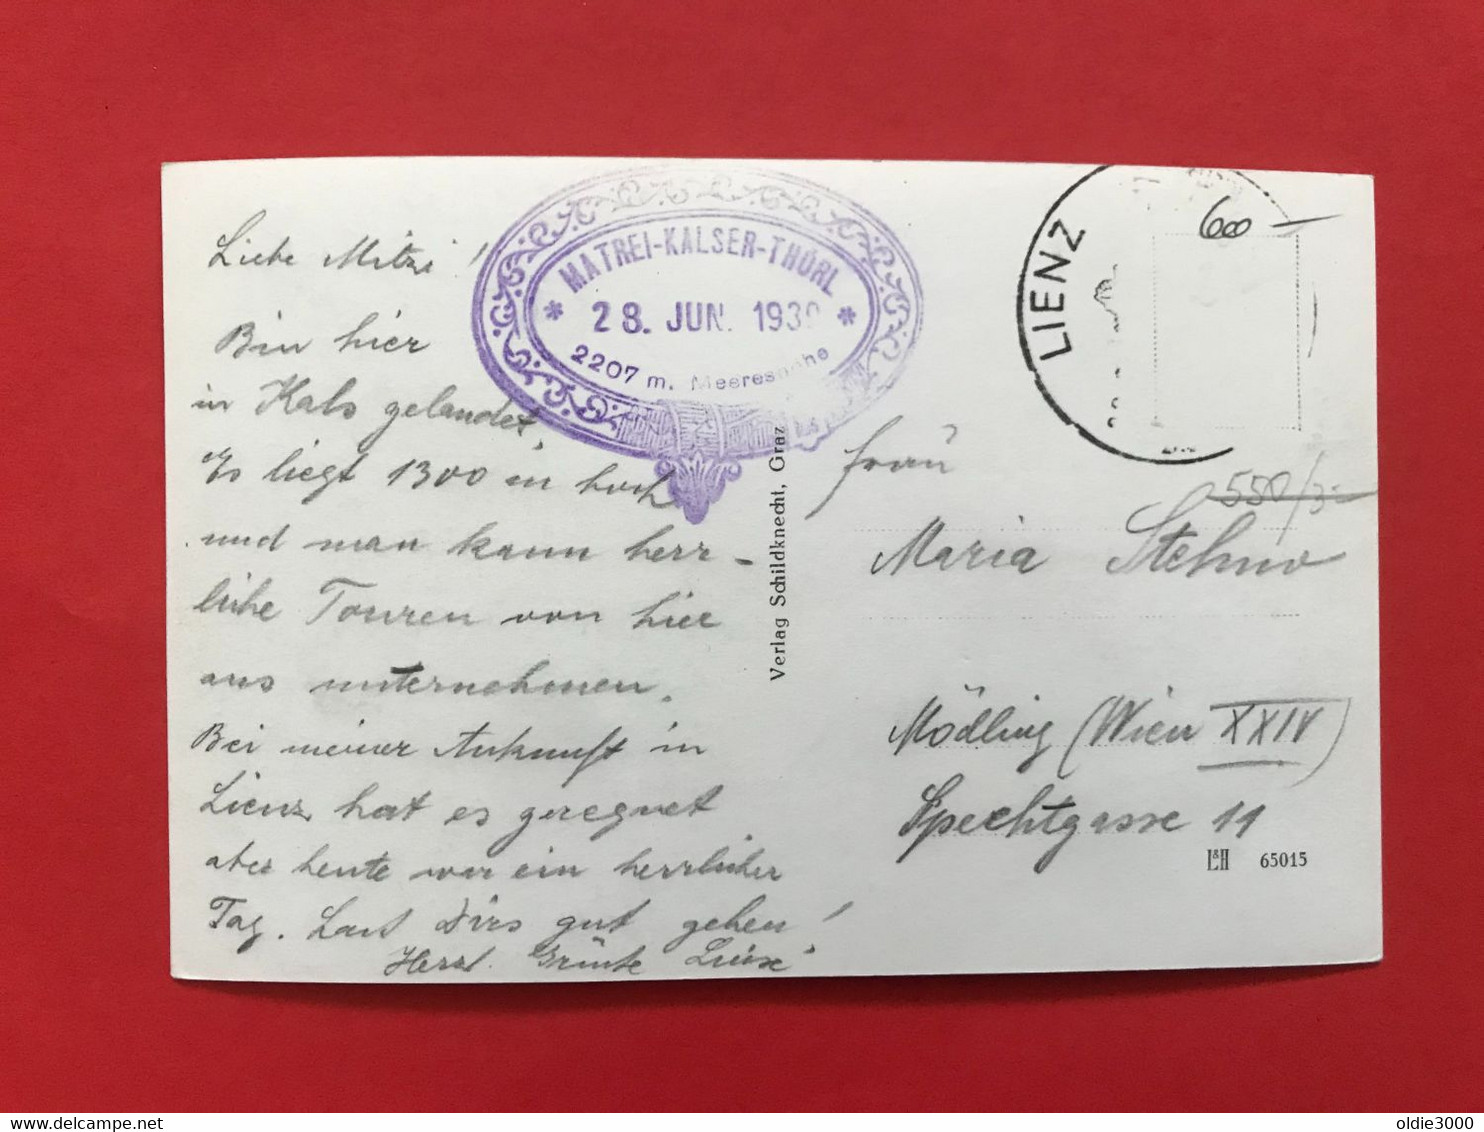 Liebe Mitzi!
Bin hier
in Kals gelandet.
Es liegt 1300 m hoch
und man kann herr-
liche Touren von hier
aus unternehmen.
Bei meiner Ankunft in
Lienz hat es geregnet
aber heute war ein herrlicher
Tag. Lass Dirs gut gehen!
Herzl. Grüße Luise
MATREI-KALSER-THÖRL
* 28. JUN. 1939 *
2207 m. Meereshöhe
Verlag Schildknecht, Graz
LIENZ
600 -
550/3-
Frau
Maria Stehno
Mödling (Wien XXIV)
Spechtgasse 11
L&H 65015
oldie3000